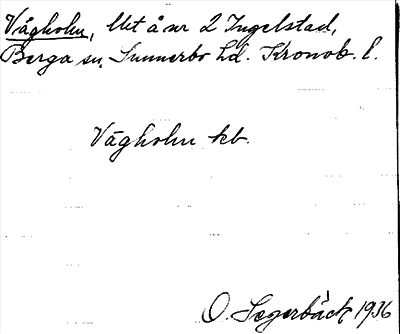 Vågholm, lht å nr 2 Ingelstad,
Berga sn. Sunnerbo hd. Kronob. l.
Vågholm kb.
O. Segerbäck 1936